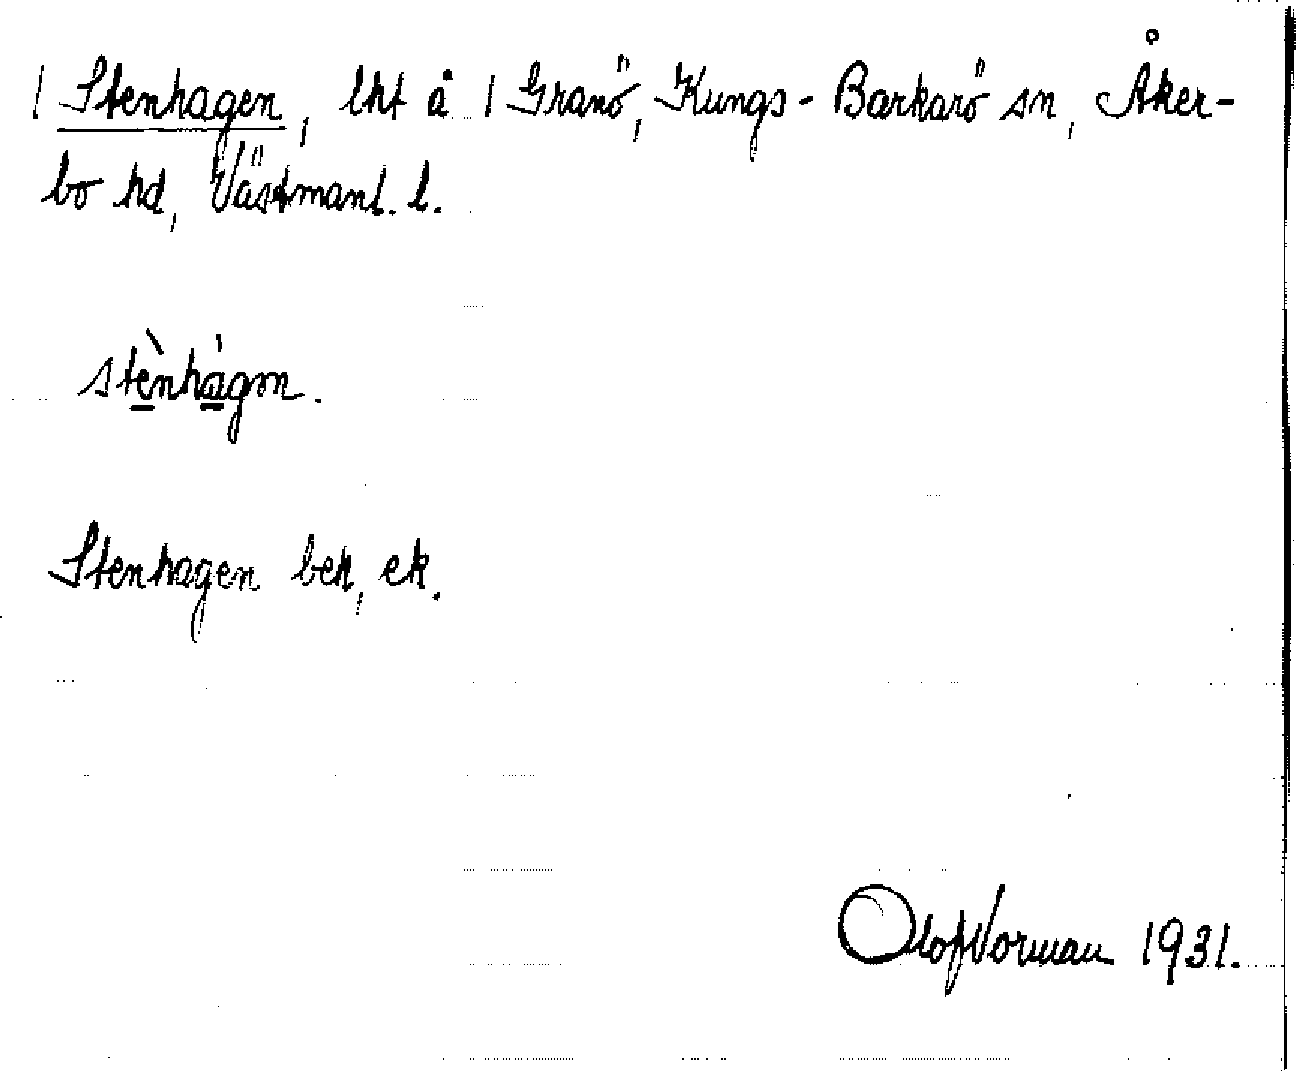 | Stenhagen, lht å | Granö, Kungs-Barkarö sn, Åker-
bo hd, Västmanl. l.
stènhágm.
Stenhagen bek, ek.
Olof Vorman 1931.